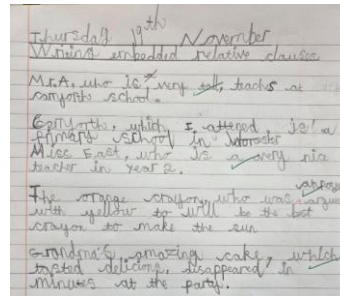 Thursday 19th November
Writing embedded relative clauses
Mr.A, who is very tall, teachs at
school.
which I attened, is a
primary school in
Miss East, who is a very nice
teacher in year 2.
The orange crayon, who was
with yellow to will be the bst
crayon to make the sun
Grandma's amazing cake, which
tasted delicious, disappeared in
minutes at the party.